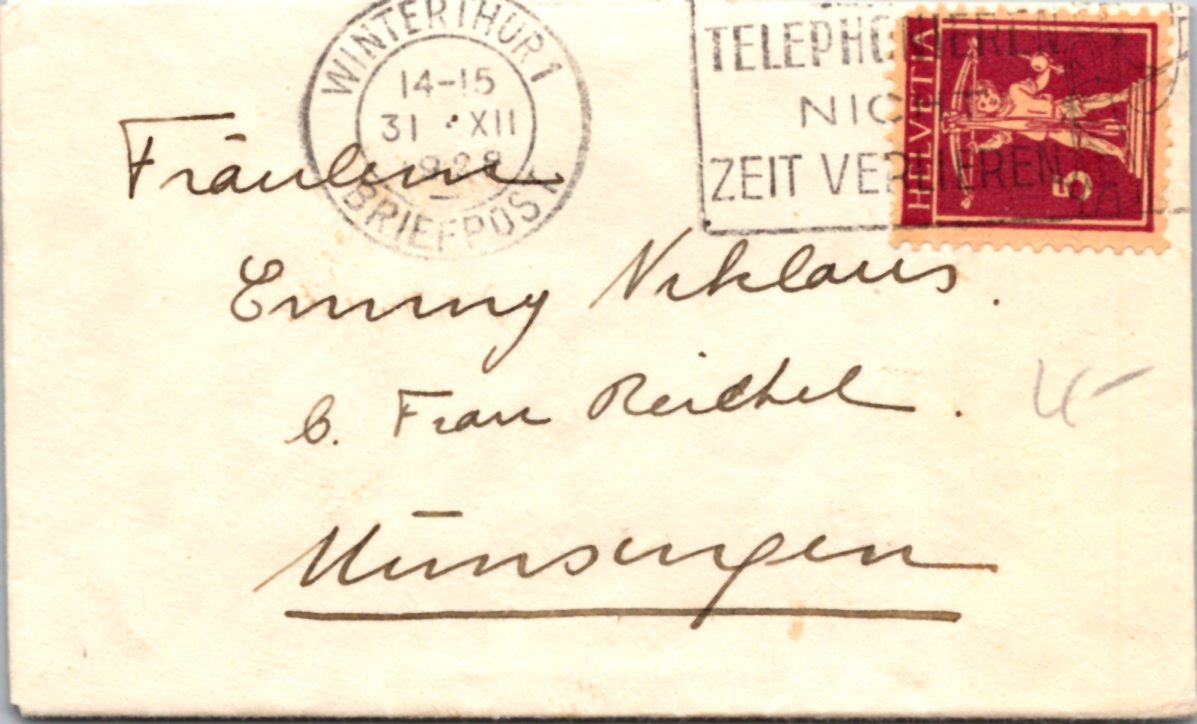 WINTERTHUR 1
14-15
31 · XII
1928
BRIEFPOST
TELEPHONIEREN
NICHT
ZEIT VERLIEREN
HELVETIA
5
Fräulein
Emmy Niklaus.
b. Frau Reichel.
Münsingen